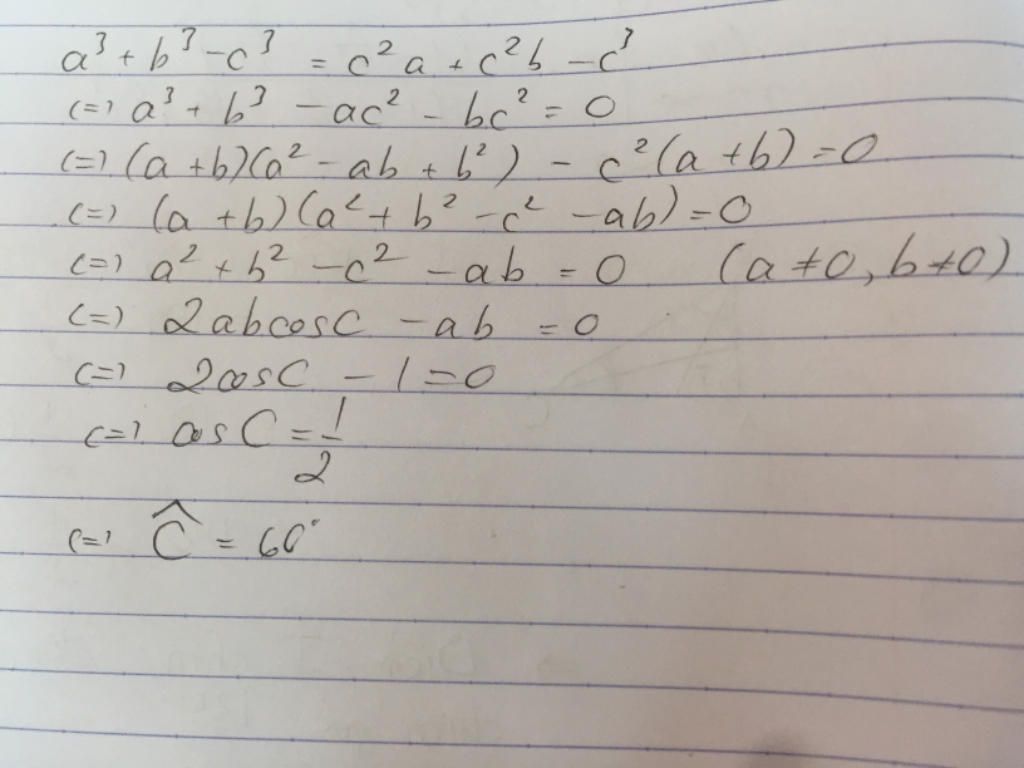 a³ + b³ - c³ = c²a + c²b - c³
(=) a³ + b³ - ac² - bc² = 0
(=) (a + b)(a² - ab + b²) - c²(a + b) = 0
(=) (a + b)(a² + b² - c² - ab) = 0
(=) a² + b² - c² - ab = 0 (a ≠ 0, b ≠ 0)
(=) 2abcosC - ab = 0
(=) 2cosC - 1 = 0
(=) cosC = 1/2
(=) Ĉ = 60°